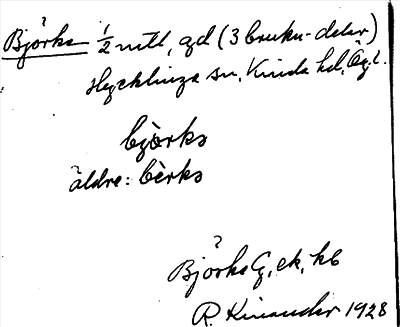 Björke ½ mtl, gd (3 bruksdelar)
Slycklinge sn, Kinda hd, Ögl.
björks
äldre: bèrks
Björke G, ek, kb
R. Kinander 1928